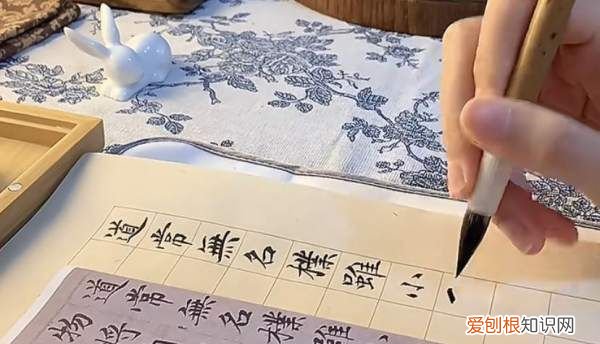 道常無名樸雖小
道常無名樸雖
物將
爱刨根知识网